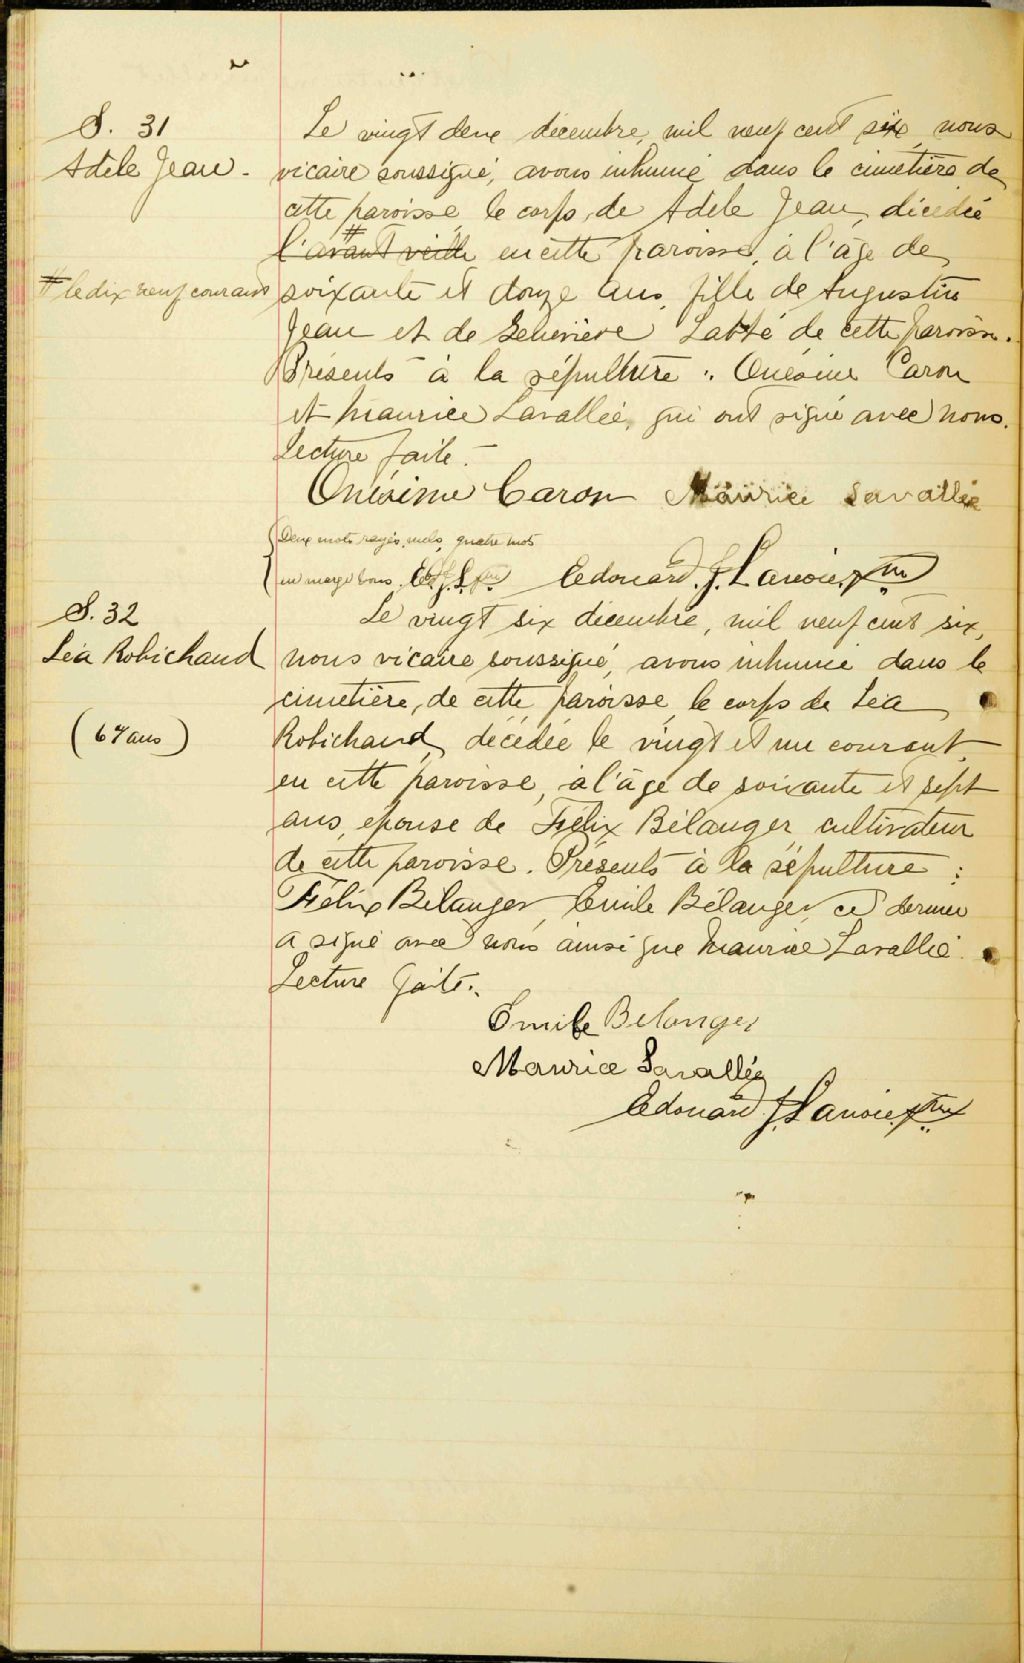 S. 31
Adèle Jean.
Le vingt deux décembre, mil neuf cent six, nous
vicaire soussigné, avons inhumé dans le cimetière de
cette paroisse, le corps, de Adèle Jean, décédée
# l'avant veille en cette paroisse, à l'âge de
# le dix neuf courant
soixante et douze ans, fille de Augustin
Jean et de Geneviève Labbé de cette paroisse.
Présents à la sépulture : Onésime Caron
et Maurice Lavallée, qui ont signé avec nous.
Lecture faite.
Onésime Caron Maurice Lavallée
Deux mots rayés nuls, quatre mots
en marge bons. E.J.L. ptre
Edouard. J. Lavoie. ptre
S. 32
Léa Robichaud
(67 ans)
Le vingt six décembre, mil neuf cent six,
nous vicaire soussigné, avons inhumé dans le
cimetière, de cette paroisse, le corps de Léa
Robichaud, décédée le vingt et un courant,
en cette paroisse, à l'âge de soixante et sept
ans, épouse de Félix Bélanger, cultivateur
de cette paroisse. Présents à la sépulture :
Félix Bélanger, Emile Bélanger, ce dernier
a signé avec nous ainsi que Maurice Lavallée.
Lecture faite.
Emile Belanger
Maurice Lavallée
Edouard J. Lavoie. ptre